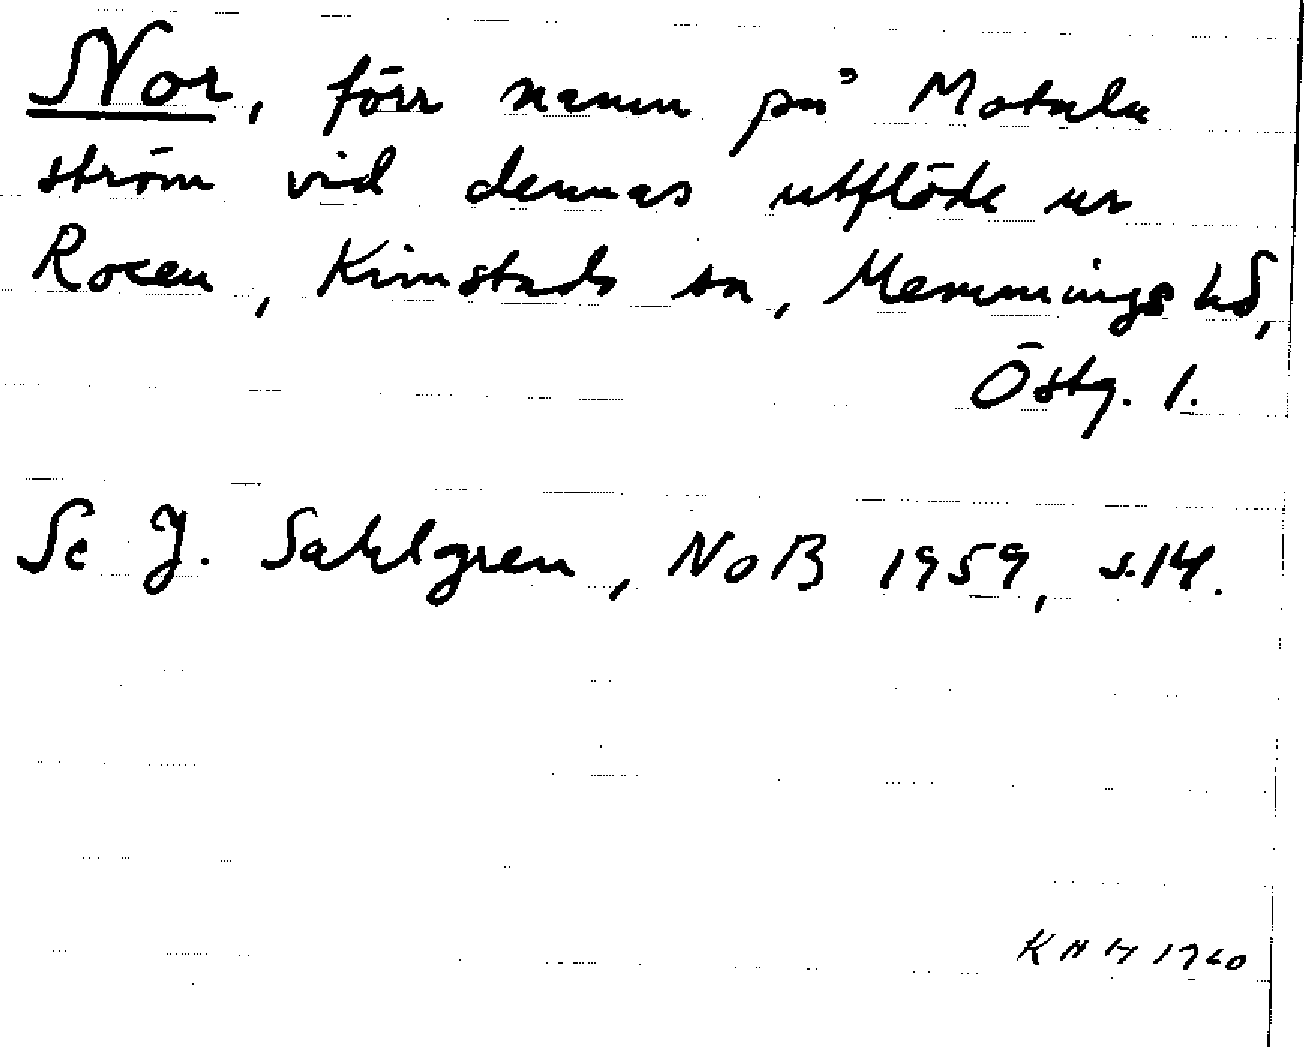 Nor, förr namn på Motala
ström vid dennas utflöde ur
Roxen, Kimstads sn, Memmings hd,
Östg. l.
Se J. Sahlgren, NoB 1959, s. 14.
1960